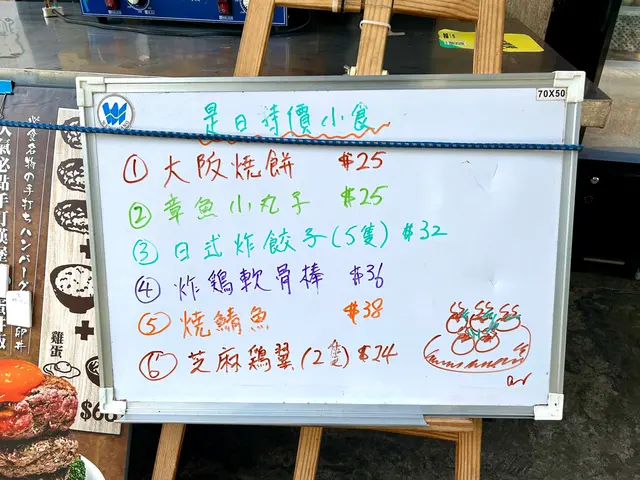 70X50
是日特價小食
① 大阪燒餅 $25
② 章魚小丸子 $25
③ 日式炸餃子(5隻) $32
④ 炸鶏軟骨棒 $36
⑤ 燒鯖魚 $38
⑥ 芝麻鶏翼(2隻) $24
の手打ちハンバーグ
雞蛋